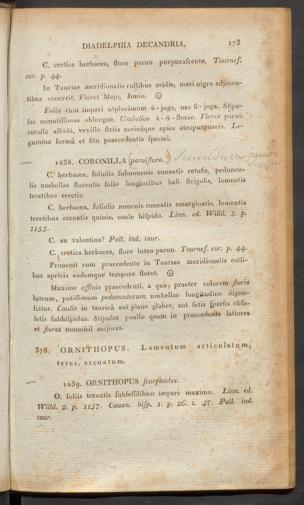 DIADELPHIA DECANDRIA. 173
C. cretica herbacea, flore paruo purpurascente. Tournef.
cor. p. 44.
In Tauriae meridionalis collibus aridis, mari nigro adjacen-
tibus occurrit. Floret Majo, Junio. ☉
Folia cum impari utplurimum 4-juga, nec 6-juga. Stipu-
lae minutissimae oblongae. Umbellae 4-6-florae. Flores parui:
corolla albida, vexillo striis carinaque apice atropurpureis. Le-
gumina forma et situ praecedentis speciei.
1438. CORONILLA (paruiflora.)
C. herbacea, foliolis subnouenis cuneatis retusis, peduncu-
lis umbellas florentis folio longioribus basi strigosis, lomentis
teretibus erectis.
C. herbacea, foliolis nouenis cuneatis emarginatis, lomentis
teretibus arcuatis quinis, caule hispido. Linn. ed. Willd. 3. p.
1155.
C. an valentina? Pall. ind. taur.
C. cretica herbacea, flore luteo paruo. Tournef. cor. p. 44.
Prouenit cum praecedente in Tauriae meridionalis colli-
bus apricis eodemque tempore floret. ☉
Maxime affinis praecedenti, a qua, praeter colorem floris
luteum, potissimum pedunculorum umbellas longitudine digno-
scitur. Caulis in taurica aut plane glaber, aut setis sparsis obso-
letis subhispidus. Stipulae paullo quam in praecedente latiores
et flores nonnihil majores.
378. ORNITHOPUS. Lomentum articulatum,
teres, arcuatum.
1439. ORNITHOPUS scorpioides.
O. foliis ternatis subsessilibus: impari maximo. Linn. ed.
Willd. 2. p. 1157. Cauan. hisp. 1. p. 26. t. 37. Pall. ind.
taur.